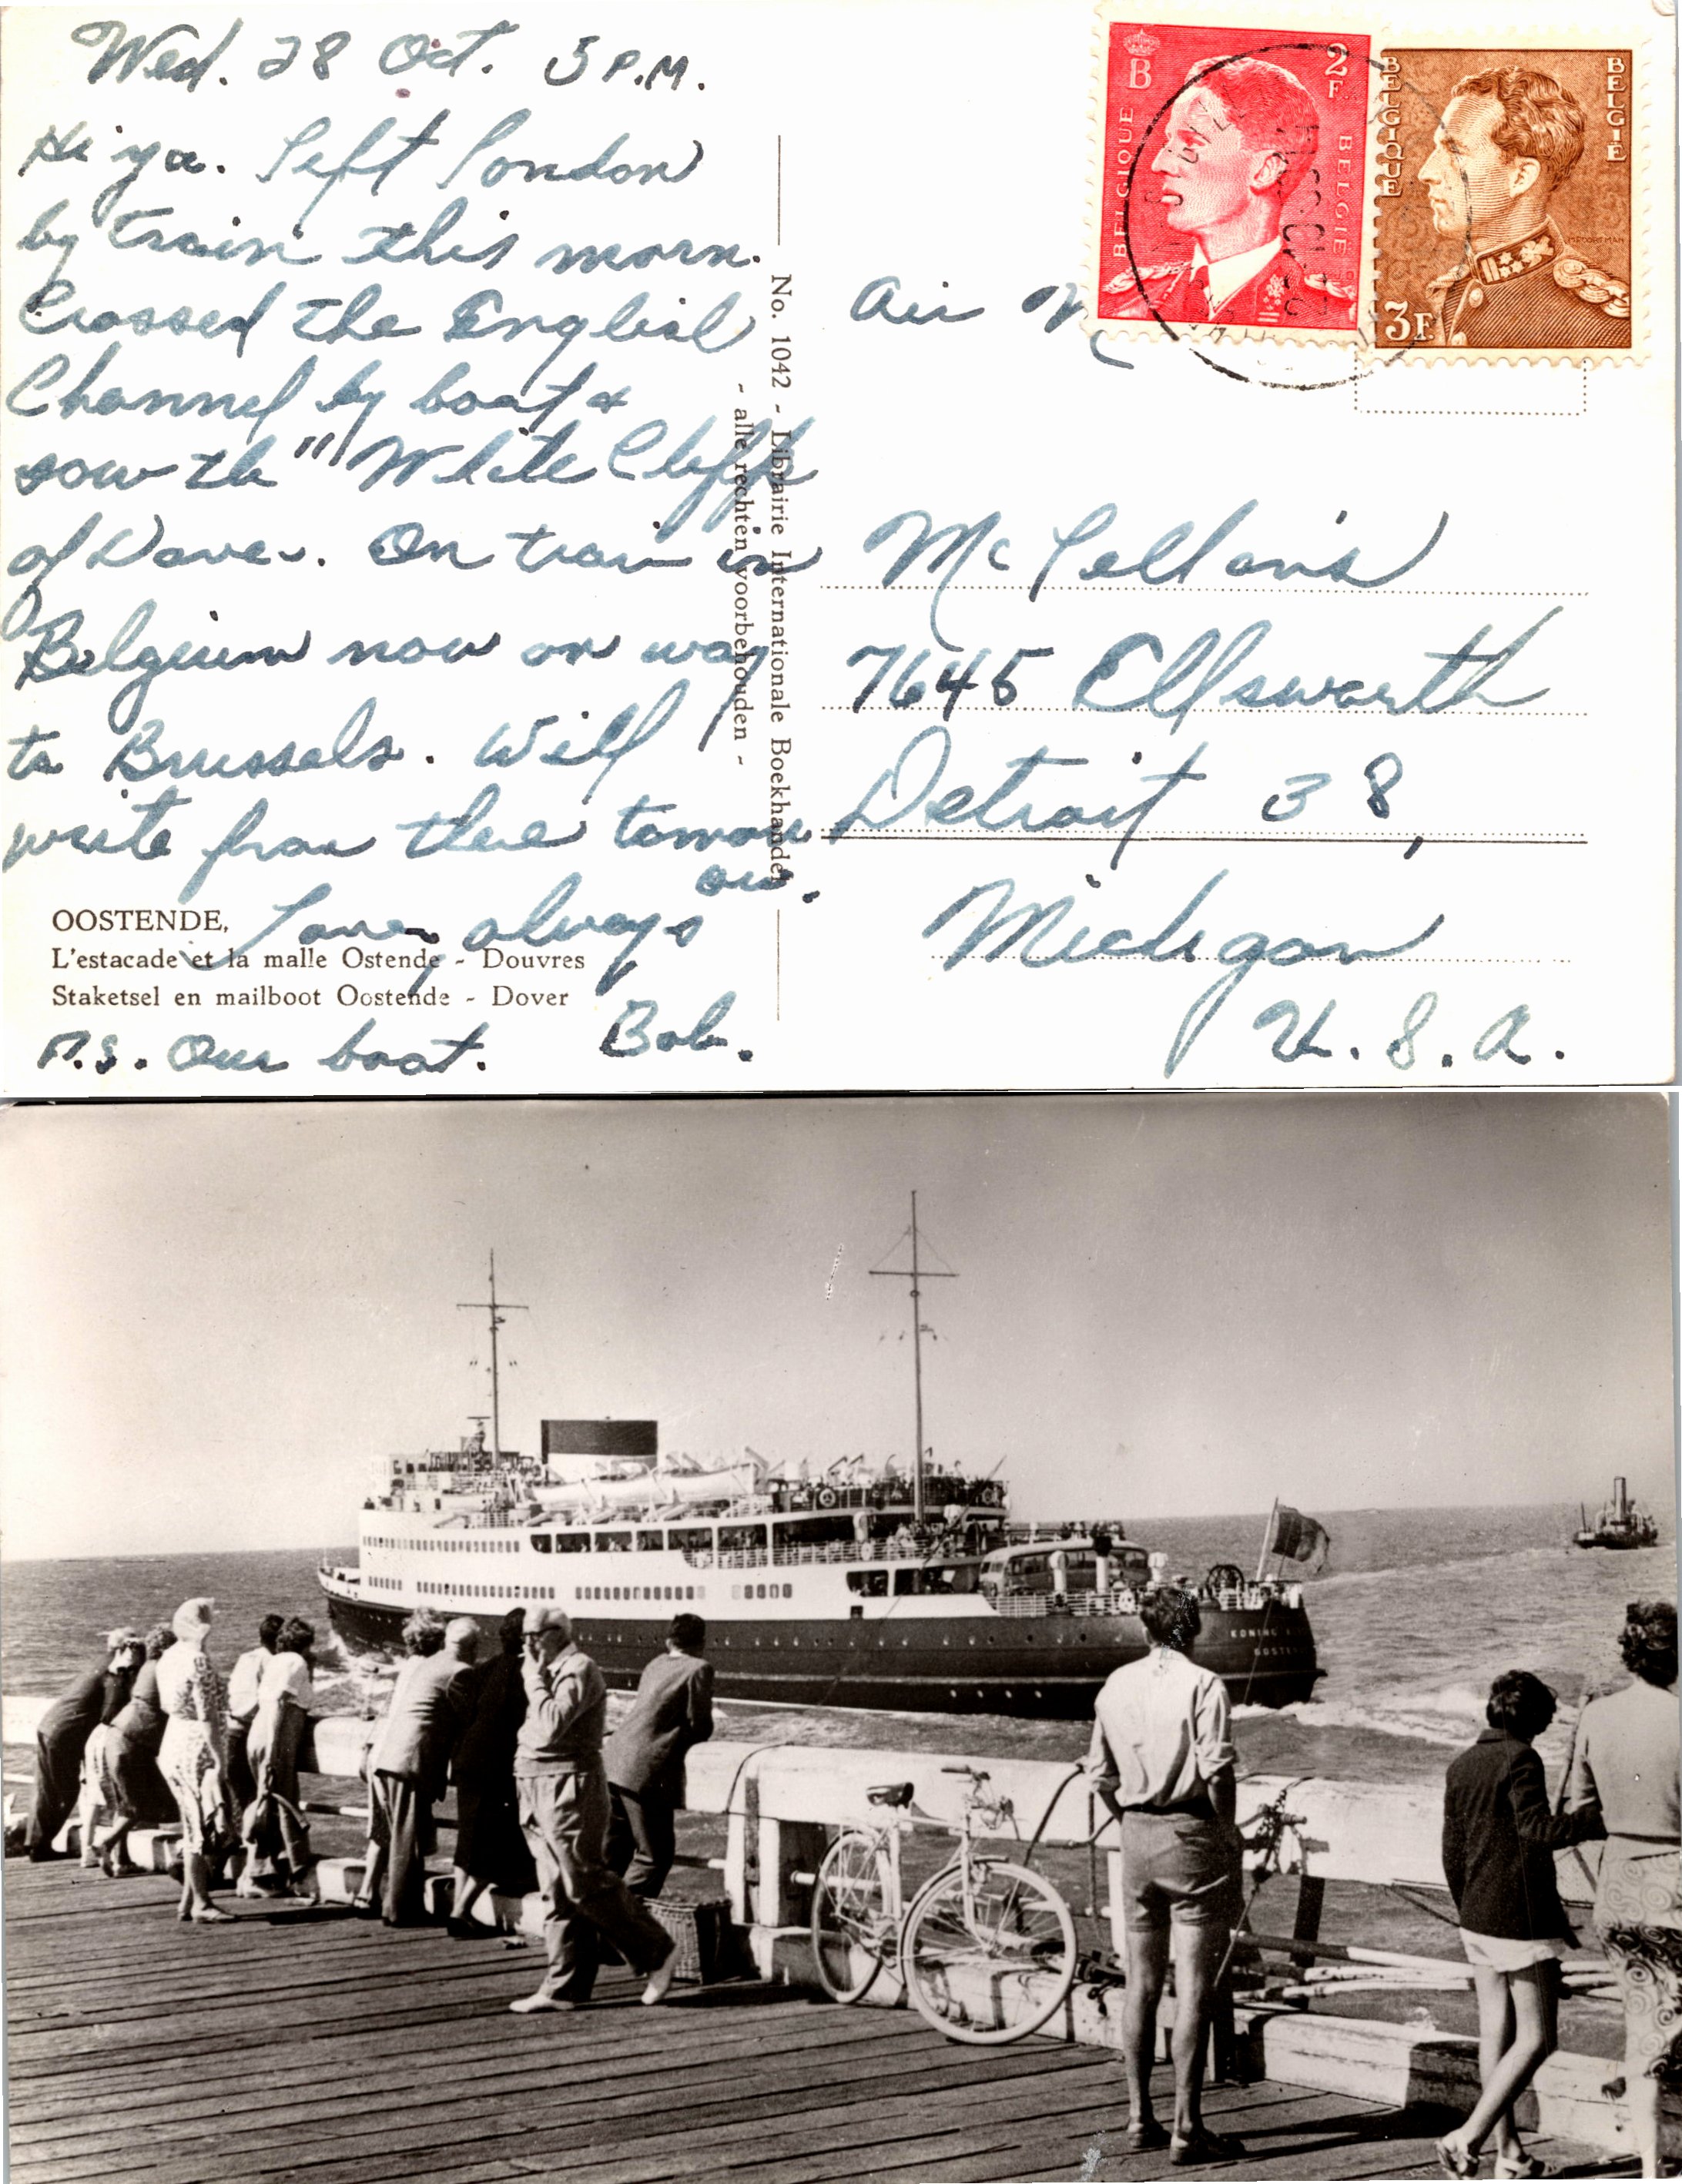 Wed. 28 Oct. 5 P.M.
Hi ya. Left London
by train this morn.
Crossed the English
Channel by boat &
saw the "White Cliffs
of Dover. On train in
Belgium now on way
to Brussels. Will
write from there tomorr
ow.
Love, always
Bob.
P.S. Our boat.
OOSTENDE,
L'estacade et la malle Ostende - Douvres
Staketsel en mailboot Oostende - Dover
No. 1042 - Librairie Internationale Boekhandel
- alle rechten voorbehouden -
Air M
B
2
F
BELGIQUE
BELGIË
BELGIQUE
BELGIË
3F
McLellan's
7645 Ellsworth
Detroit 38,
Michigan
U.S.A.
KONING